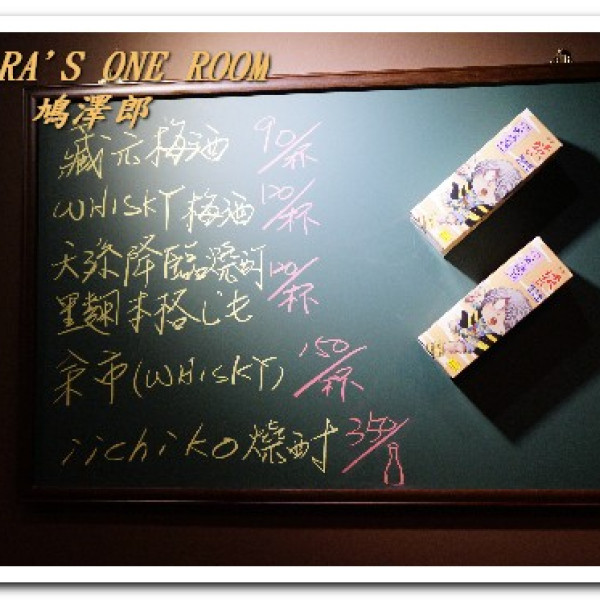 RA'S ONE ROOM
鳩澤郎
藏元梅酒 90/杯
WHISKY梅酒 120/杯
天弥降臨燒酎 120/杯
黑麴本格いも
余市(WHISKY) 150/杯
iichiko燒酎 350/